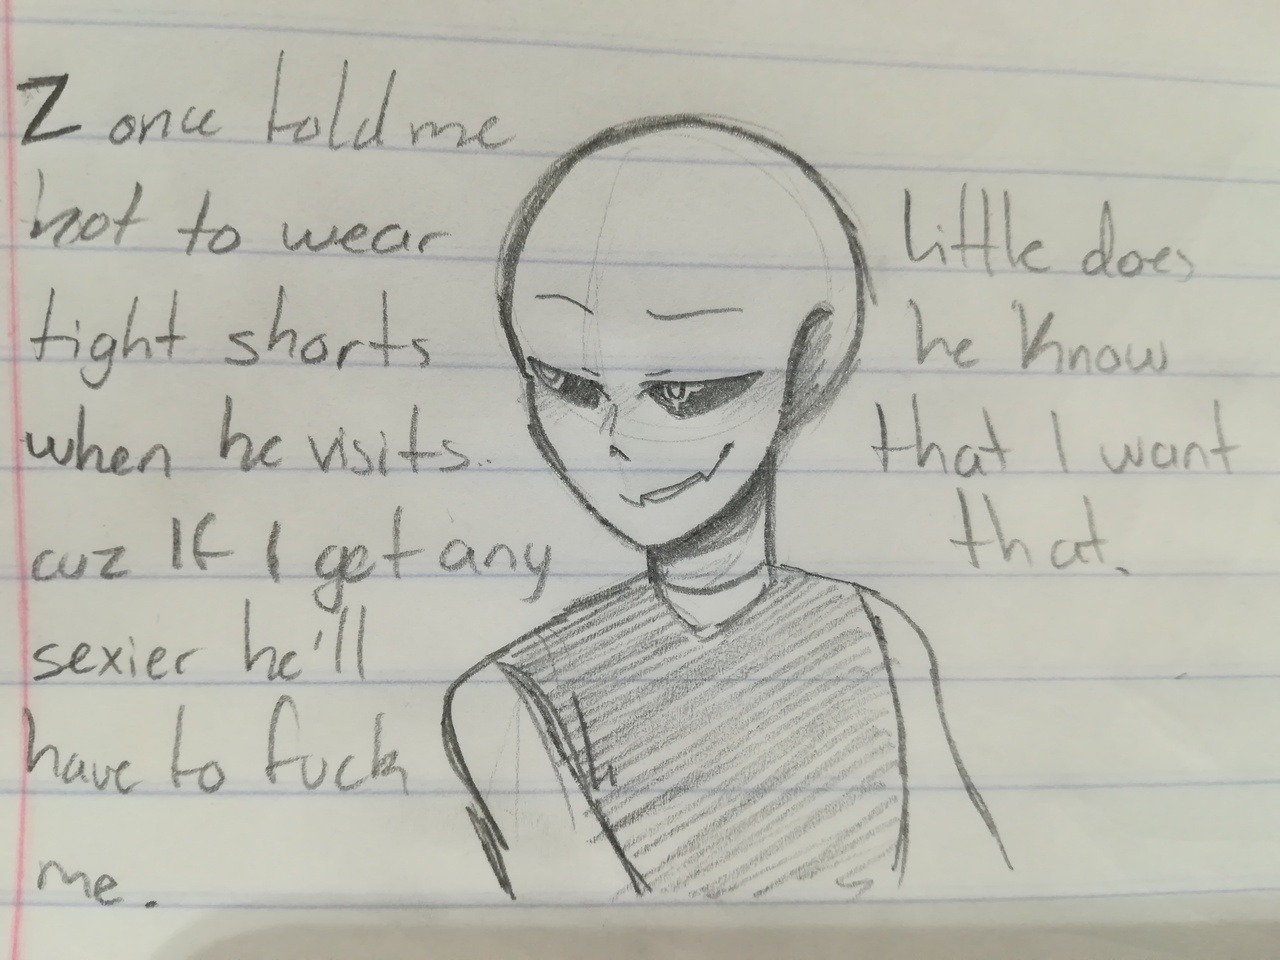 Z once told me
not to wear
tight shorts
when he visits..
cuz If I get any
sexier he'll
have to fuck
me.
little does
he know
that I want
that.